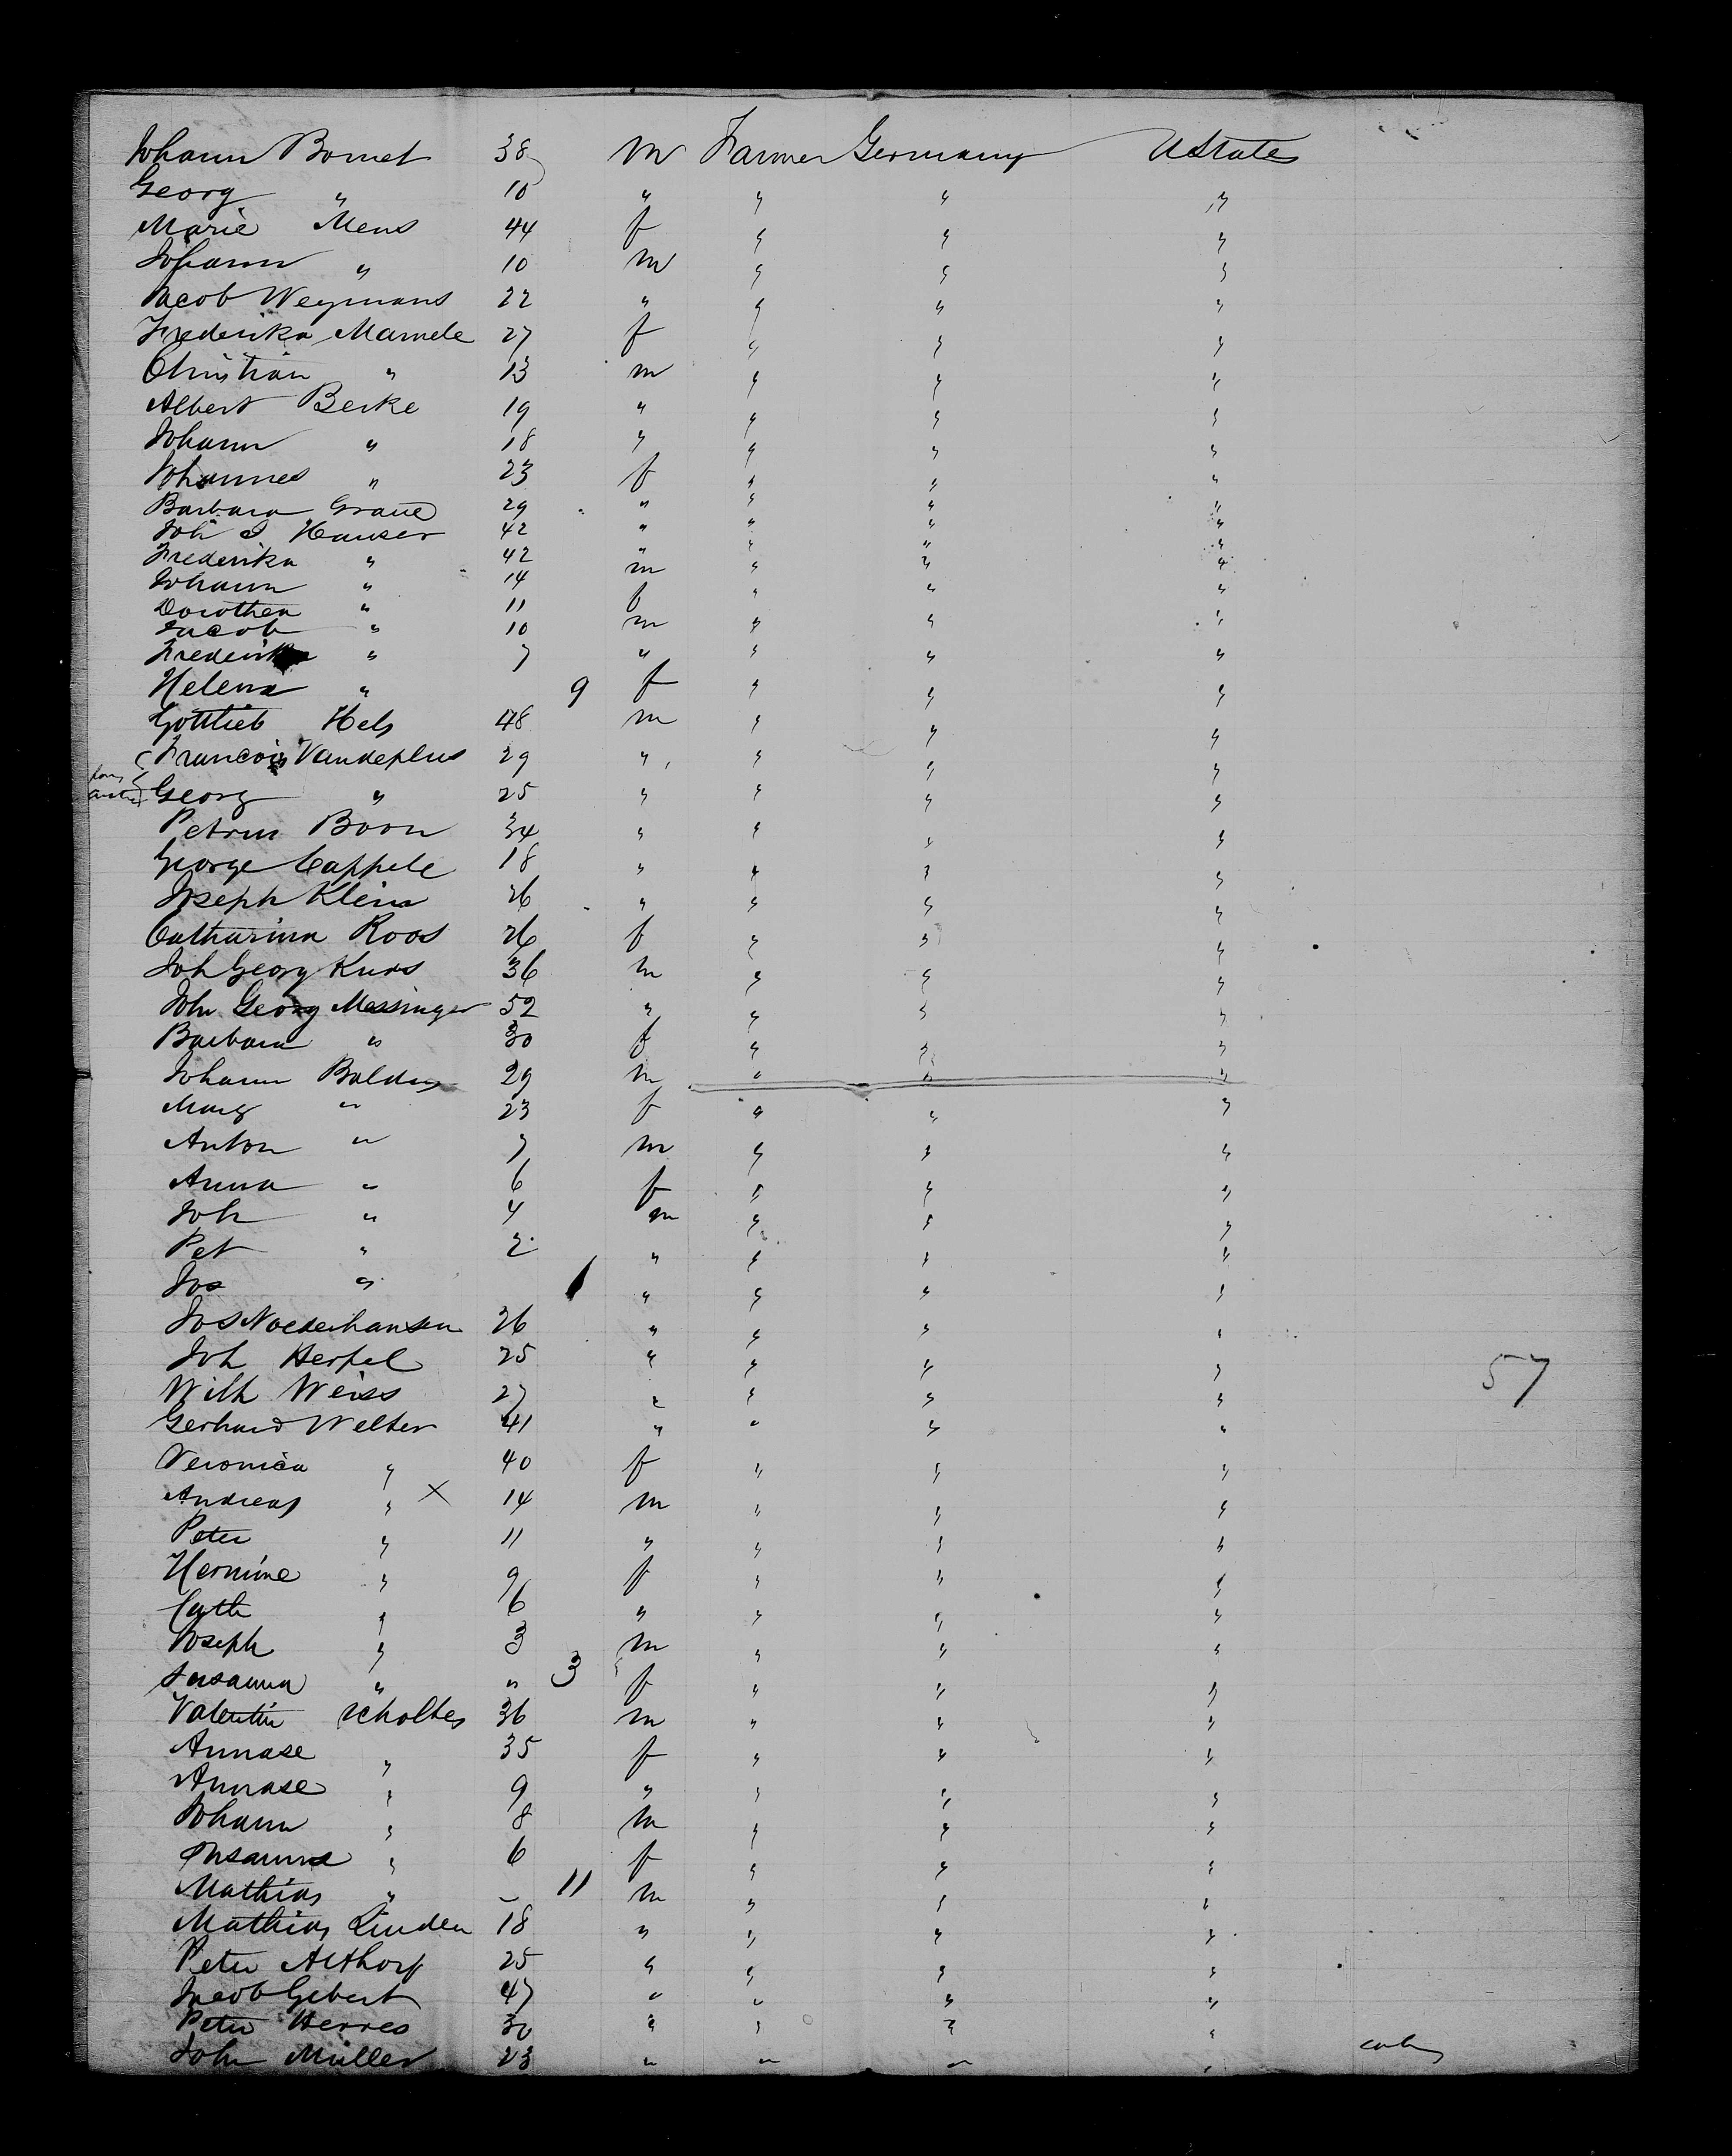 Johann Bomet 38 m Farmer Germany UStates
Georg " 10 " " " "
Marie Mens 44 f " " "
Johann " 10 m " " "
Jacob Weymans 22 " " " "
Frederika Mamele 27 f " " "
Christian " 13 m " " "
Albert Berke 19 " " " "
Johann " 18 " " " "
Johannes " 23 f " " "
Barbara Graue 29 " " " "
Joh J Hauser 42 " " " "
Frederika " 42 " " " "
Johann " 14 m " " "
Dorothea " 11 f " " "
Jacob " 10 m " " "
Frederika " 7 " " " "
Helena " 9 f " " "
Gottlieb Hels 48 m " " "
Francois Vandeplus 29 " " " "
Georg " 25 " " " "
Petrus Boon 34 " " " "
George Cappele 18 " " " "
Joseph Klein 26 " " " "
Catharina Roos 26 f " " "
Joh Georg Kurs 36 m " " "
John Georg Messinger 52 " " " "
Barbara " 30 f " " "
Johann Baldus 29 m " " "
Marg " 23 f " " "
Anton " 7 m " " "
Anna " 6 f " " "
Joh " 4 m " " "
Pet " 2 " " " "
Jos " 1 " " " "
Jos Noederhausen 26 " " " "
Joh Herfel 25 " " " "
57
Wilh Weiss 27 " " " "
Gerhard Welter 41 " " " "
Veronica " 40 f " " "
Andreas " X 14 m " " "
Peter " 11 " " " "
Hermine " 9 f " " "
Cath " 6 " " " "
Joseph " 3 m " " "
Susanna " " 3 f " " "
Valentin Scholtes 36 m " " "
Annase " 35 f " " "
Annase " 9 " " " "
Johann " 8 m " " "
Susanna " 6 f " " "
Mathias " - 11 m " " "
Mathias Linden 18 " " " "
Peter Althorf 25 " " " "
Jacob Gebert 47 " " " "
Peter Herres 30 " " " "
John Müller 23 " " " "